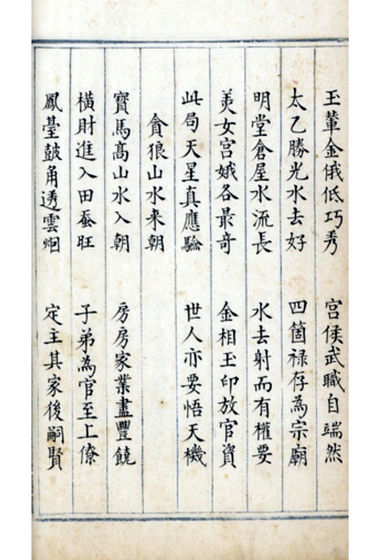 玉輦金俄低巧秀　宮侯武職自端然
太乙勝光水去好　四箇禄存為宗廟
明堂倉屋水流長　水去射而有權要
美女宮娥各最奇　金相玉印放官資
此局天星真應驗　世人亦要悟天機
貪狼山水来朝
寳馬髙山水入朝　房房家業盡豐饒
橫財進入田蚕旺　子弟為官至上僚
鳳臺皷角透雲烟　定主其家後嗣賢